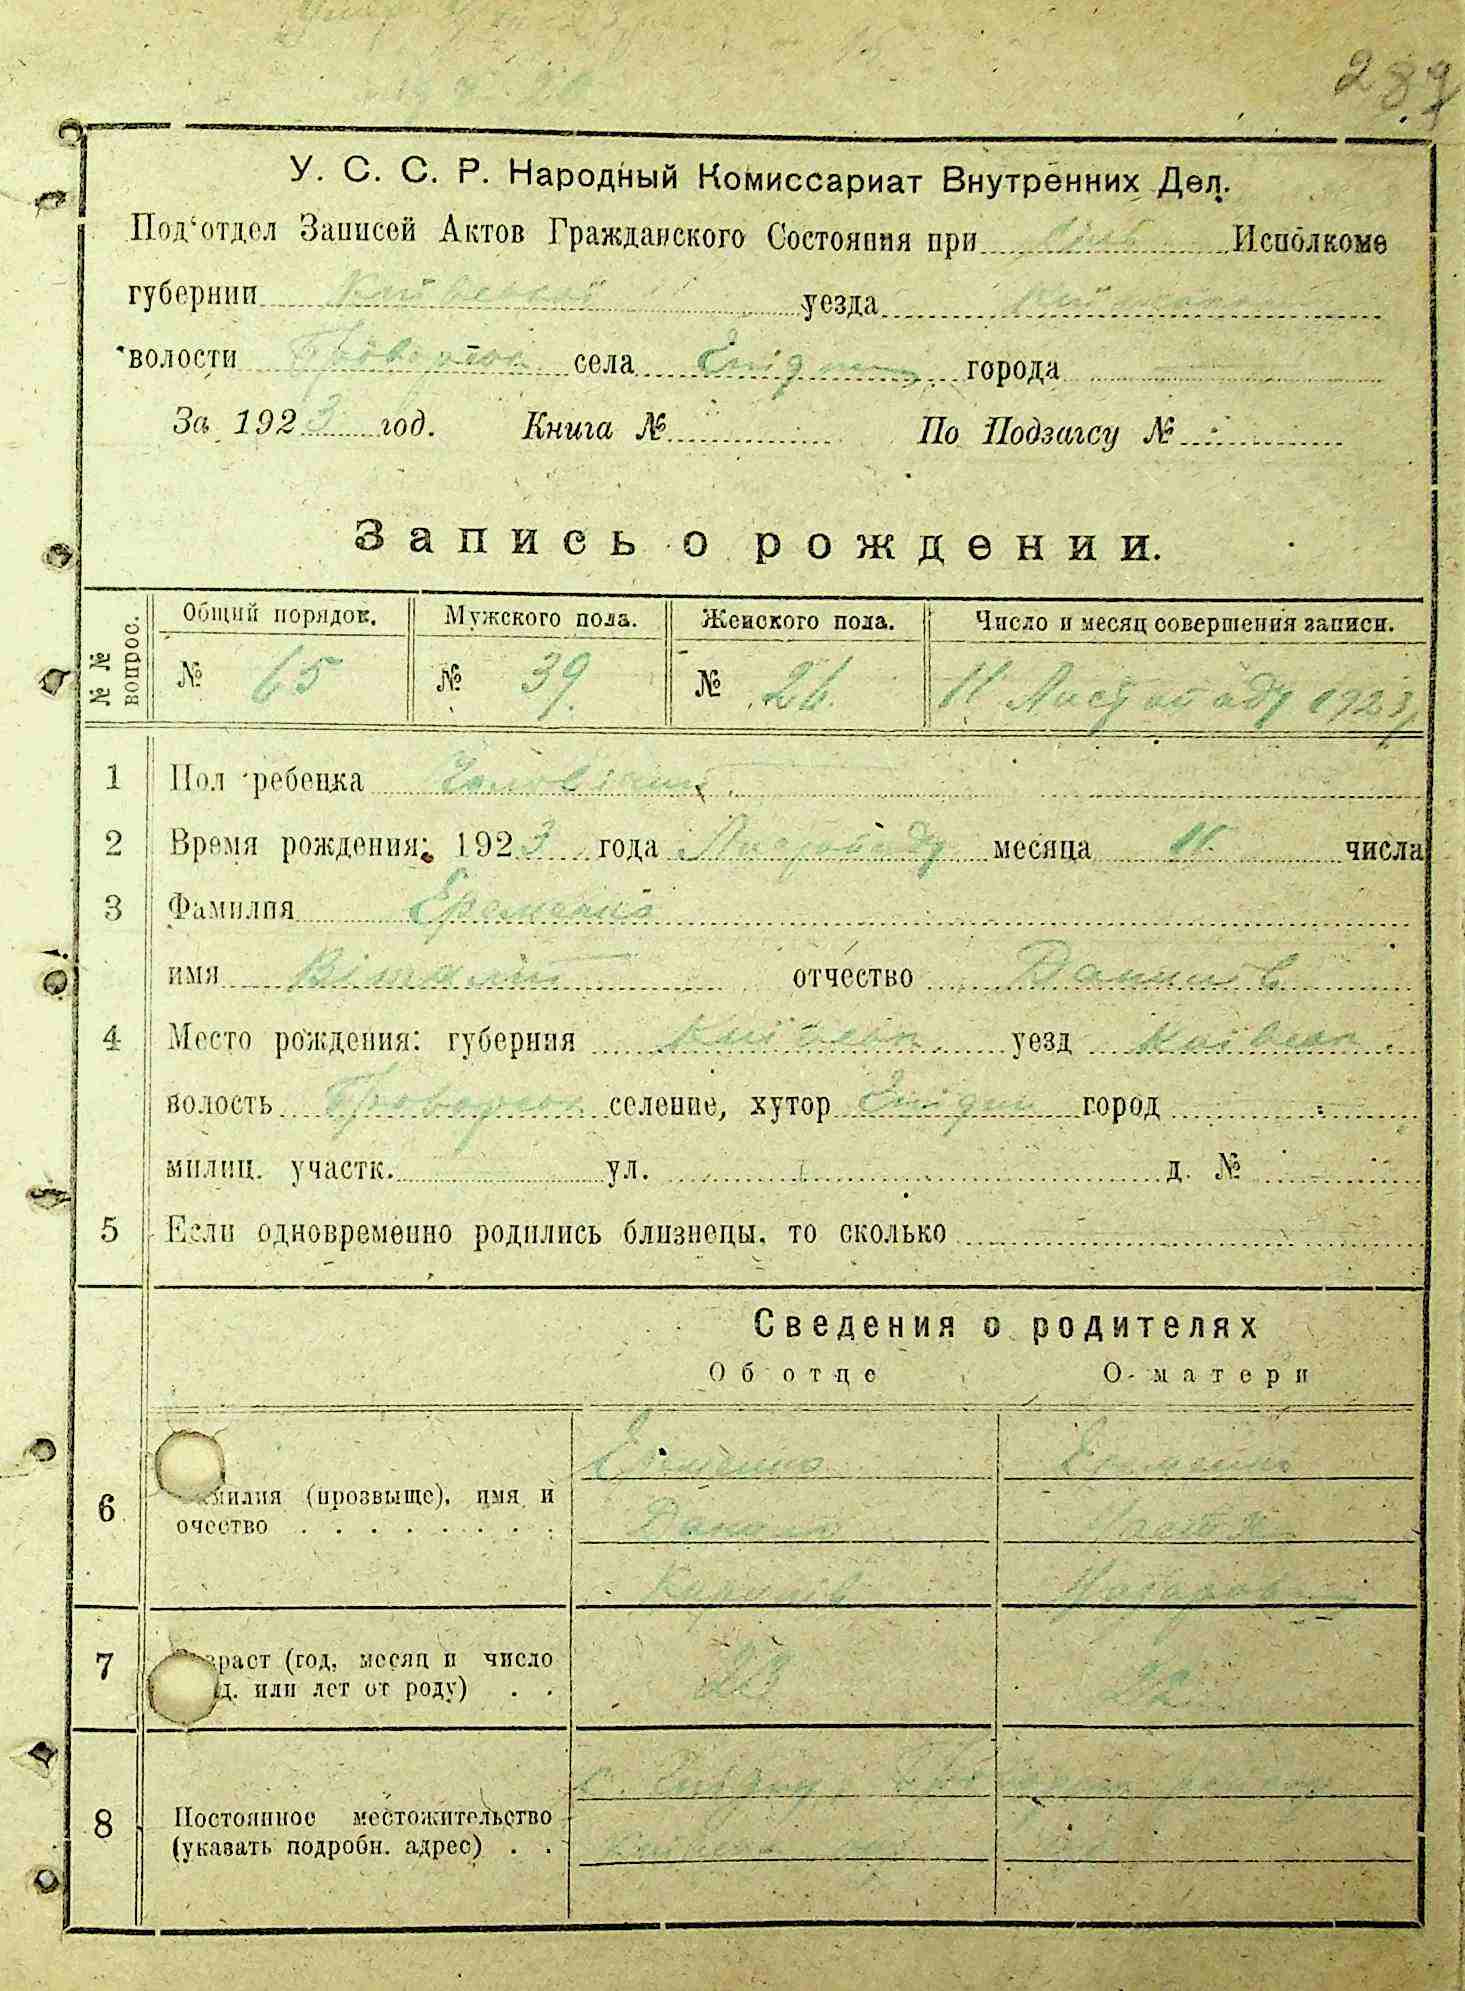 289
У. С. С. Р. Народный Комиссариат Внутренних Дел.
Под'отдел Записей Актов Гражданского Состояния при Исполкоме
губернии Київської уезда
волости Броварсок села города
За 1923 год. Книга № По Подзагсу №
Запись о рождении.
№ № вопрос. Общий порядок. Мужского пола. Женского пола. Число и месяц совершения записи.
№ 65 № 39. № 26. 11 Листопаду 1923
1 Пол ребенка Чоловічий
2 Время рождения: 1923 года Листопаду месяца 11 числа
3 Фамилия Еременко
имя Віталій отчество Данилов
4 Место рождения: губерния Київськ. уезд Київськ.
волость Броварськ селение, хутор город
милиц. участк. ул. д. №
5 Если одновременно родились близнецы, то сколько
Сведения о родителях
Об отце О матери
Еременко Еременко
6 милия (прозвыще), имя и
очество Данило
7 зраст (год, месяц и число 23 22
д. или лет от роду)
с.
8 Постоянное местожительство
(указать подробн. адрес)